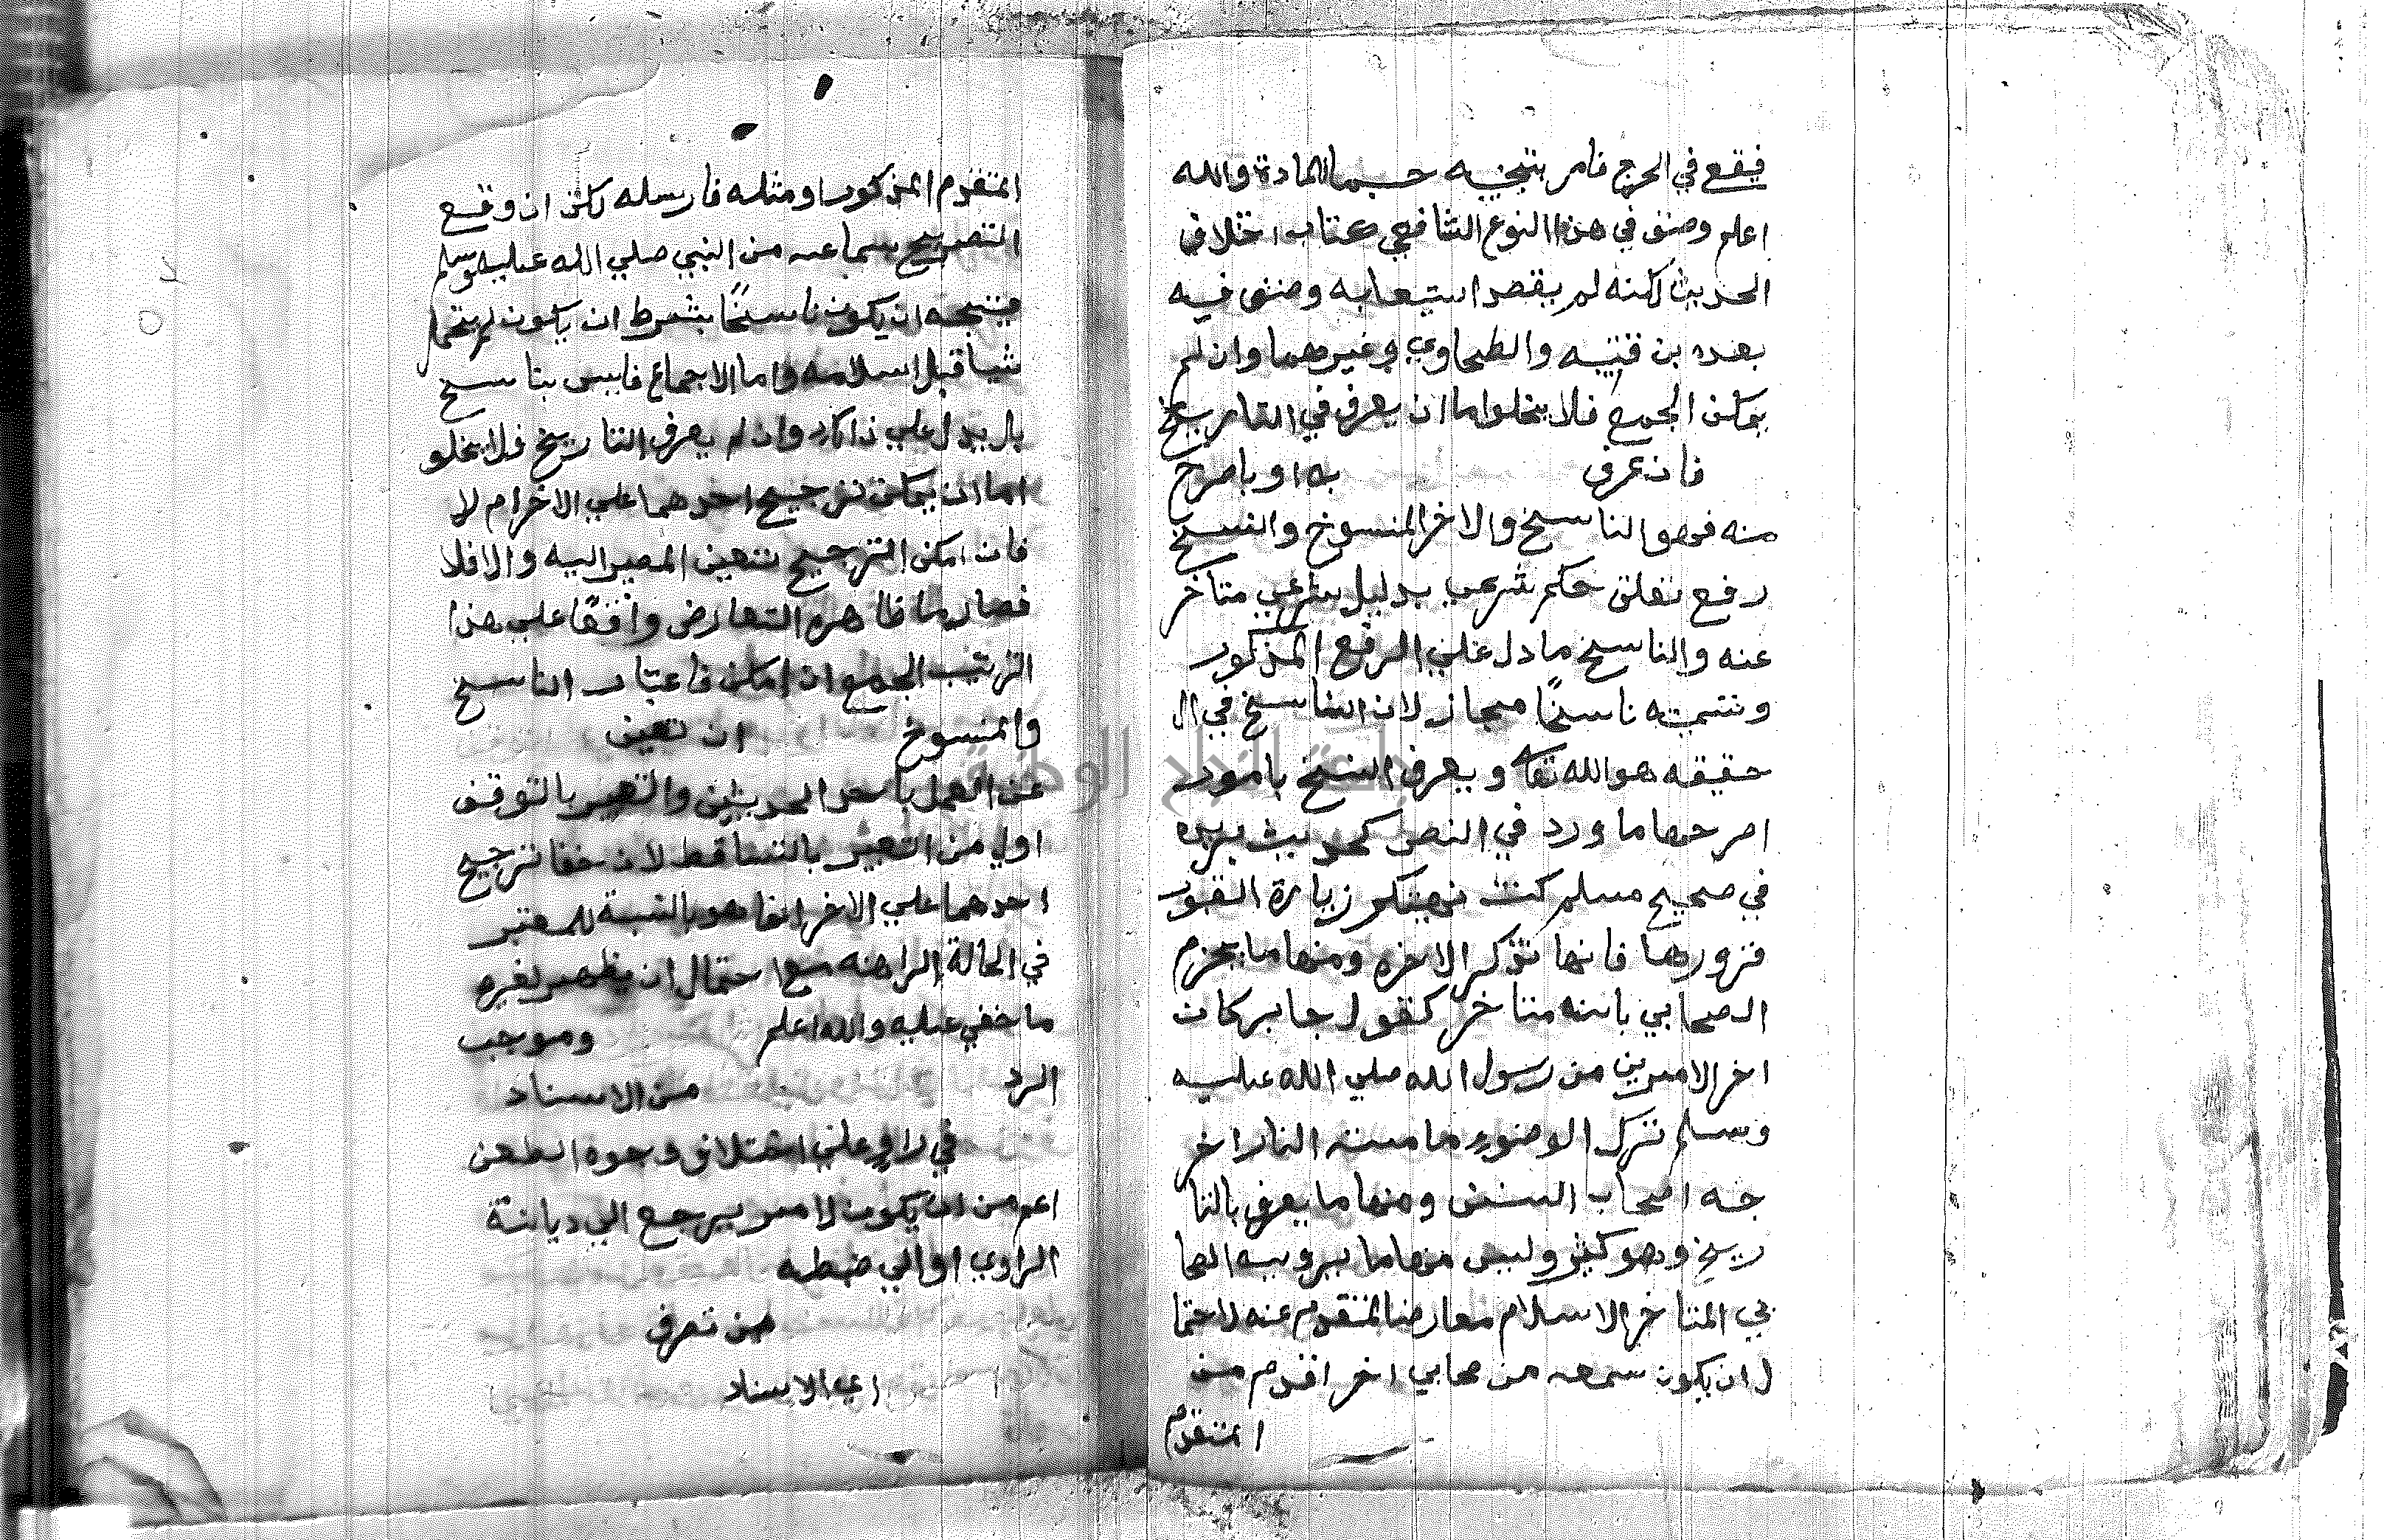 فيقع في الحرج فامر بتجنبه حسما للمادة والله
اعلم وصنف في هذا النوع الشافعي كتاب اختلاف
الحديث لكنه لم يقصد استيعابه وصنف فيه
بعده بن قتيبه والطحاوي وغيرهما وان لم
يمكن الجمع فلا يخلوا ما ان يعرف في التاريخ
فان عرف به او باصرح
منه فهو الناسخ والاخر المنسوخ والنسخ
رفع تعلق حكم شرعي بدليل شرعي متاخر
عنه والناسخ ما دل علي الرفع المذكور
وتسميته ناسخًا مجاز لان الناسخ في ال
حقيقه هو الله تعالى و يعرف النسخ بامور
اصرحها ما ورد في النص كحديث بريده
في صحيح مسلم كنت نهيتكم زيارة القبور
فزوروها فانها تذكر الاخره ومنها ما يجزم
الصحابي بانه متاخر كقول جابر كان
اخر الامرين من رسول الله صلي الله عليه
وسلم ترك الوضوء مامسته النار اخر
جه اصحاب السنن ومنها ما يعرف بالتا
ريخ وهو كثير وليس منها ما يرويه الصحا
بي المتاخر الاسلام معارضا لمتقدم عنه لاحتما
ل ان يكون سمعه من صحابي اخر اقدم من
المتقدم
المتقدم المذكور او مثله فارسله لكن ان وقع
التصريح بسماعه من النبي صلي الله عليه وسلم
فيتجه ان يكون ناسخًا بشرط ان يكون لم يتحمل
شيا قبل اسلامه واما الاجماع فليس بناسخ
بل يدل علي ذلك وان لم يعرف التاريخ فلا يخلو
اما ان يمكن ترجيح احدهما علي الاخر ام لا
فان امكن الترجيح تعين المصير اليه والا فلا
فصار ما ظاهره التعارض واقعًا علي هذا
الترتيب الجمع ان امكن فاعتبار الناسخ
والمنسوخ ان تعين
عن العمل باحد الحديثين والتعبير بالتوقف
اولي من التعبير بالتساقط لان خفا ترجيح
احدهما علي الاخر انما هو بالنسبة للمعتبر
في الحالة الراهنه مع احتمال ان يظهر لغيره
ما خفي عليه والله اعلم وموجب
الرد من الاسناد
في راو علي اختلاف وجوه الطعن
اعم من ان يكون لامر يرجع الي ديانة
الراوي او الي ضبطه
من تعرف
اي الاسناد
جامعة النجاح الوطنية